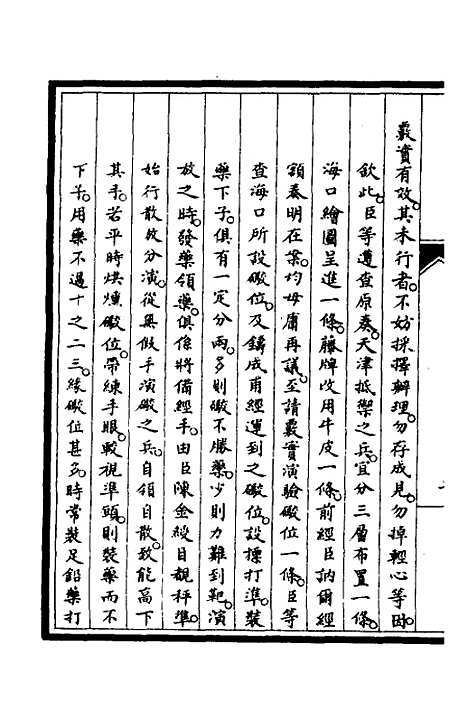 覈實有效。其未行者。不妨採擇辦理。勿存成見。勿掉輕心等因。
欽此。臣等遵查原奏。天津抵禦之兵。宜分三層布置一條。
海口繪圖呈進一條。藤牌改用牛皮一條。前經臣訥爾經
額奏明在案。均毋庸再議。至請覈實演驗礮位一條。臣等
查海口所設礮位。及鑄成甫經運到之礮位。設摽打準。裝
藥下子。俱有一定分兩。多則礮不勝藥。少則力難到靶。演
放之時。發藥領藥。俱係將備經手。由臣陳金綬目覩秤準。
始行散放分演。從無假手演礮之兵。自領自散。致能高下
其手。若平時烘燻礮位。帶練手眼。較視準頭。則裝藥而不
下子。用藥不過十之二三。緣礮位甚多。時常裝足鉛藥打